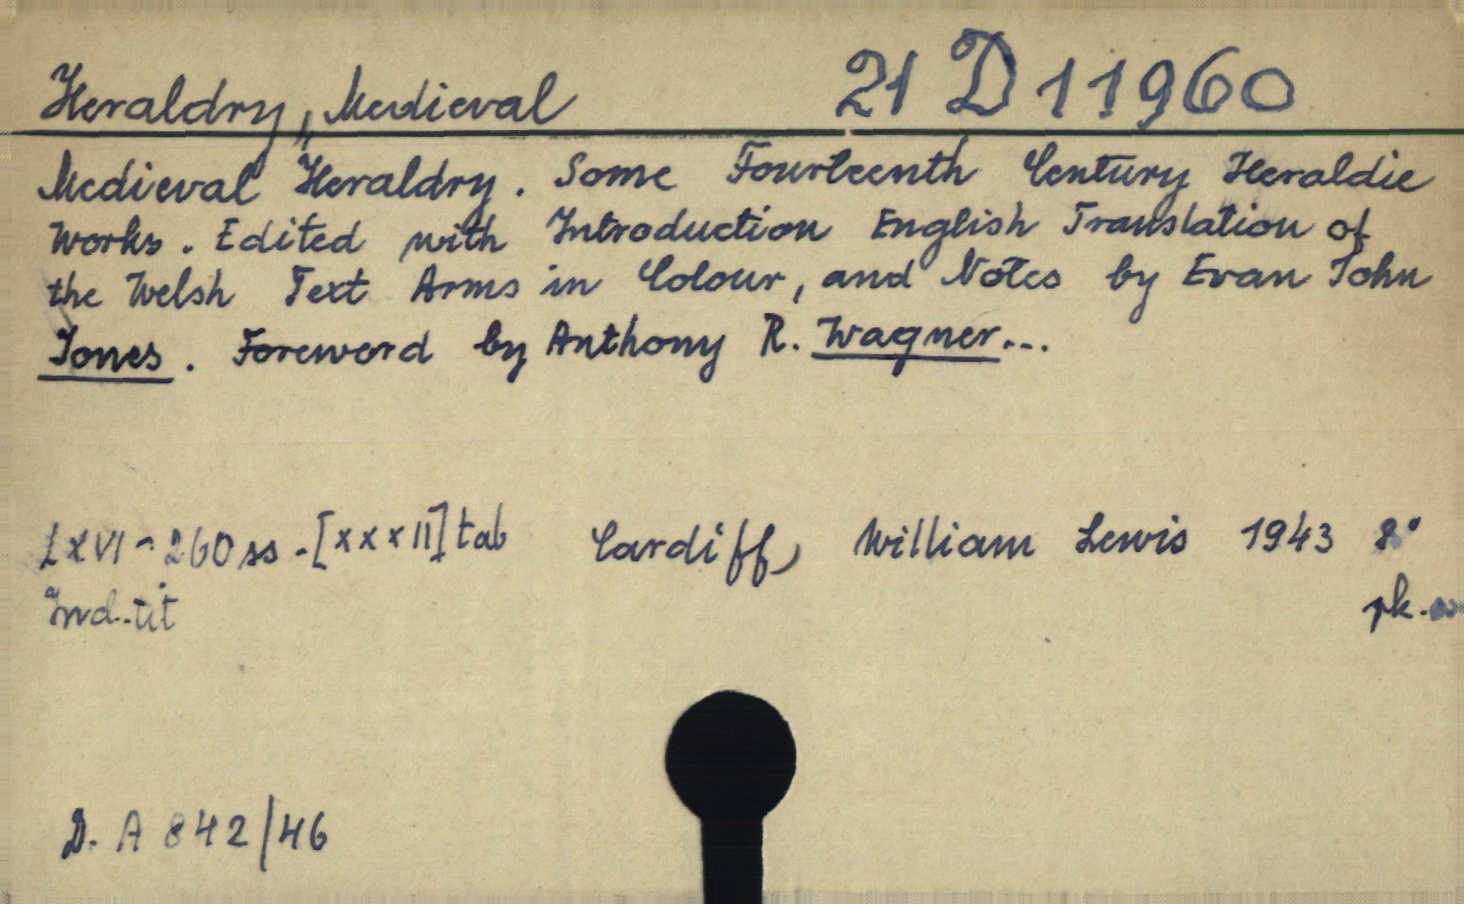 Heraldry, Medieval
21 D 11960
Medieval Heraldry. Some Fourteenth Century Heraldic
Works. Edited with Introduction English Translation of
the Welsh Text Arms in Colour, and Notes by Evan John
Jones. Foreword by Anthony R. Wagner...
LXVI - 260 ss. - [XXXII] tab Cardiff, William Lewis 1943 8°
Ind. tit pk.
D. A 842/46